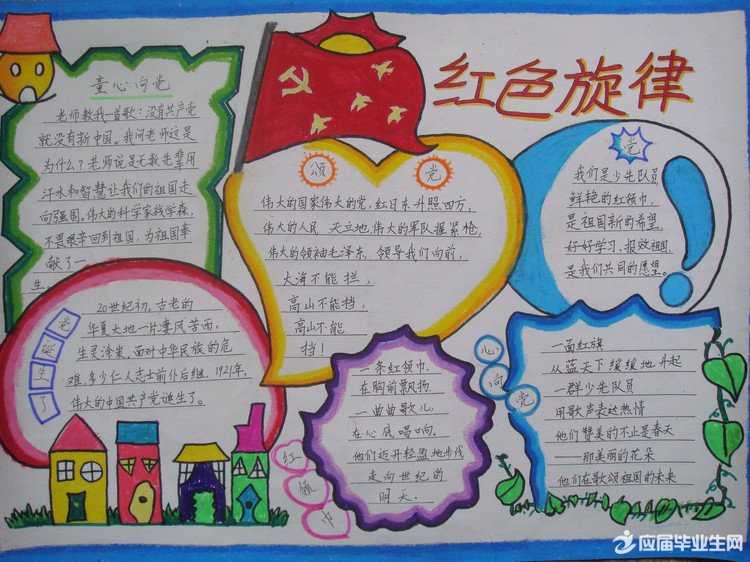 红色旋律
童心向党
老师教我一首歌：没有共产党
就没有新中国。我问老师这是
为什么？老师说是无数先辈用
汗水和智慧让我们的祖国走
向强国。伟大的科学家钱学森，
不畏艰辛回到祖国，为祖国奉
献了一
生。
颂党
伟大的国家伟大的党，红日东升照四方，
伟大的人民 天立地，伟大的军队握紧枪，
伟大的领袖毛泽东，领导我们向前，
大海不能拦，
高山不能挡，
高山不能
挡！
党
我们是少先队员
鲜艳的红领巾，
是祖国新的希望。
好好学习，报效祖国
是我们共同的愿望。
党诞生了
20世纪初，古老的
华夏大地一片凄风苦雨，
生灵涂炭。面对中华民族的危
难，多少仁人志士前仆后继，1921年，
伟大的中国共产党诞生了。
红领巾
一条红领巾，
在胸前飘扬
一曲曲歌儿
在心底唱响。
他们迈开轻盈地步伐
走向世纪的
明天。
心向党
一面红旗
从蓝天下缓缓地升起
一群少先队员
用歌声表达热情
他们赞美的不止是春天
——那美丽的花朵
他们在歌颂祖国的未来
应届毕业生网